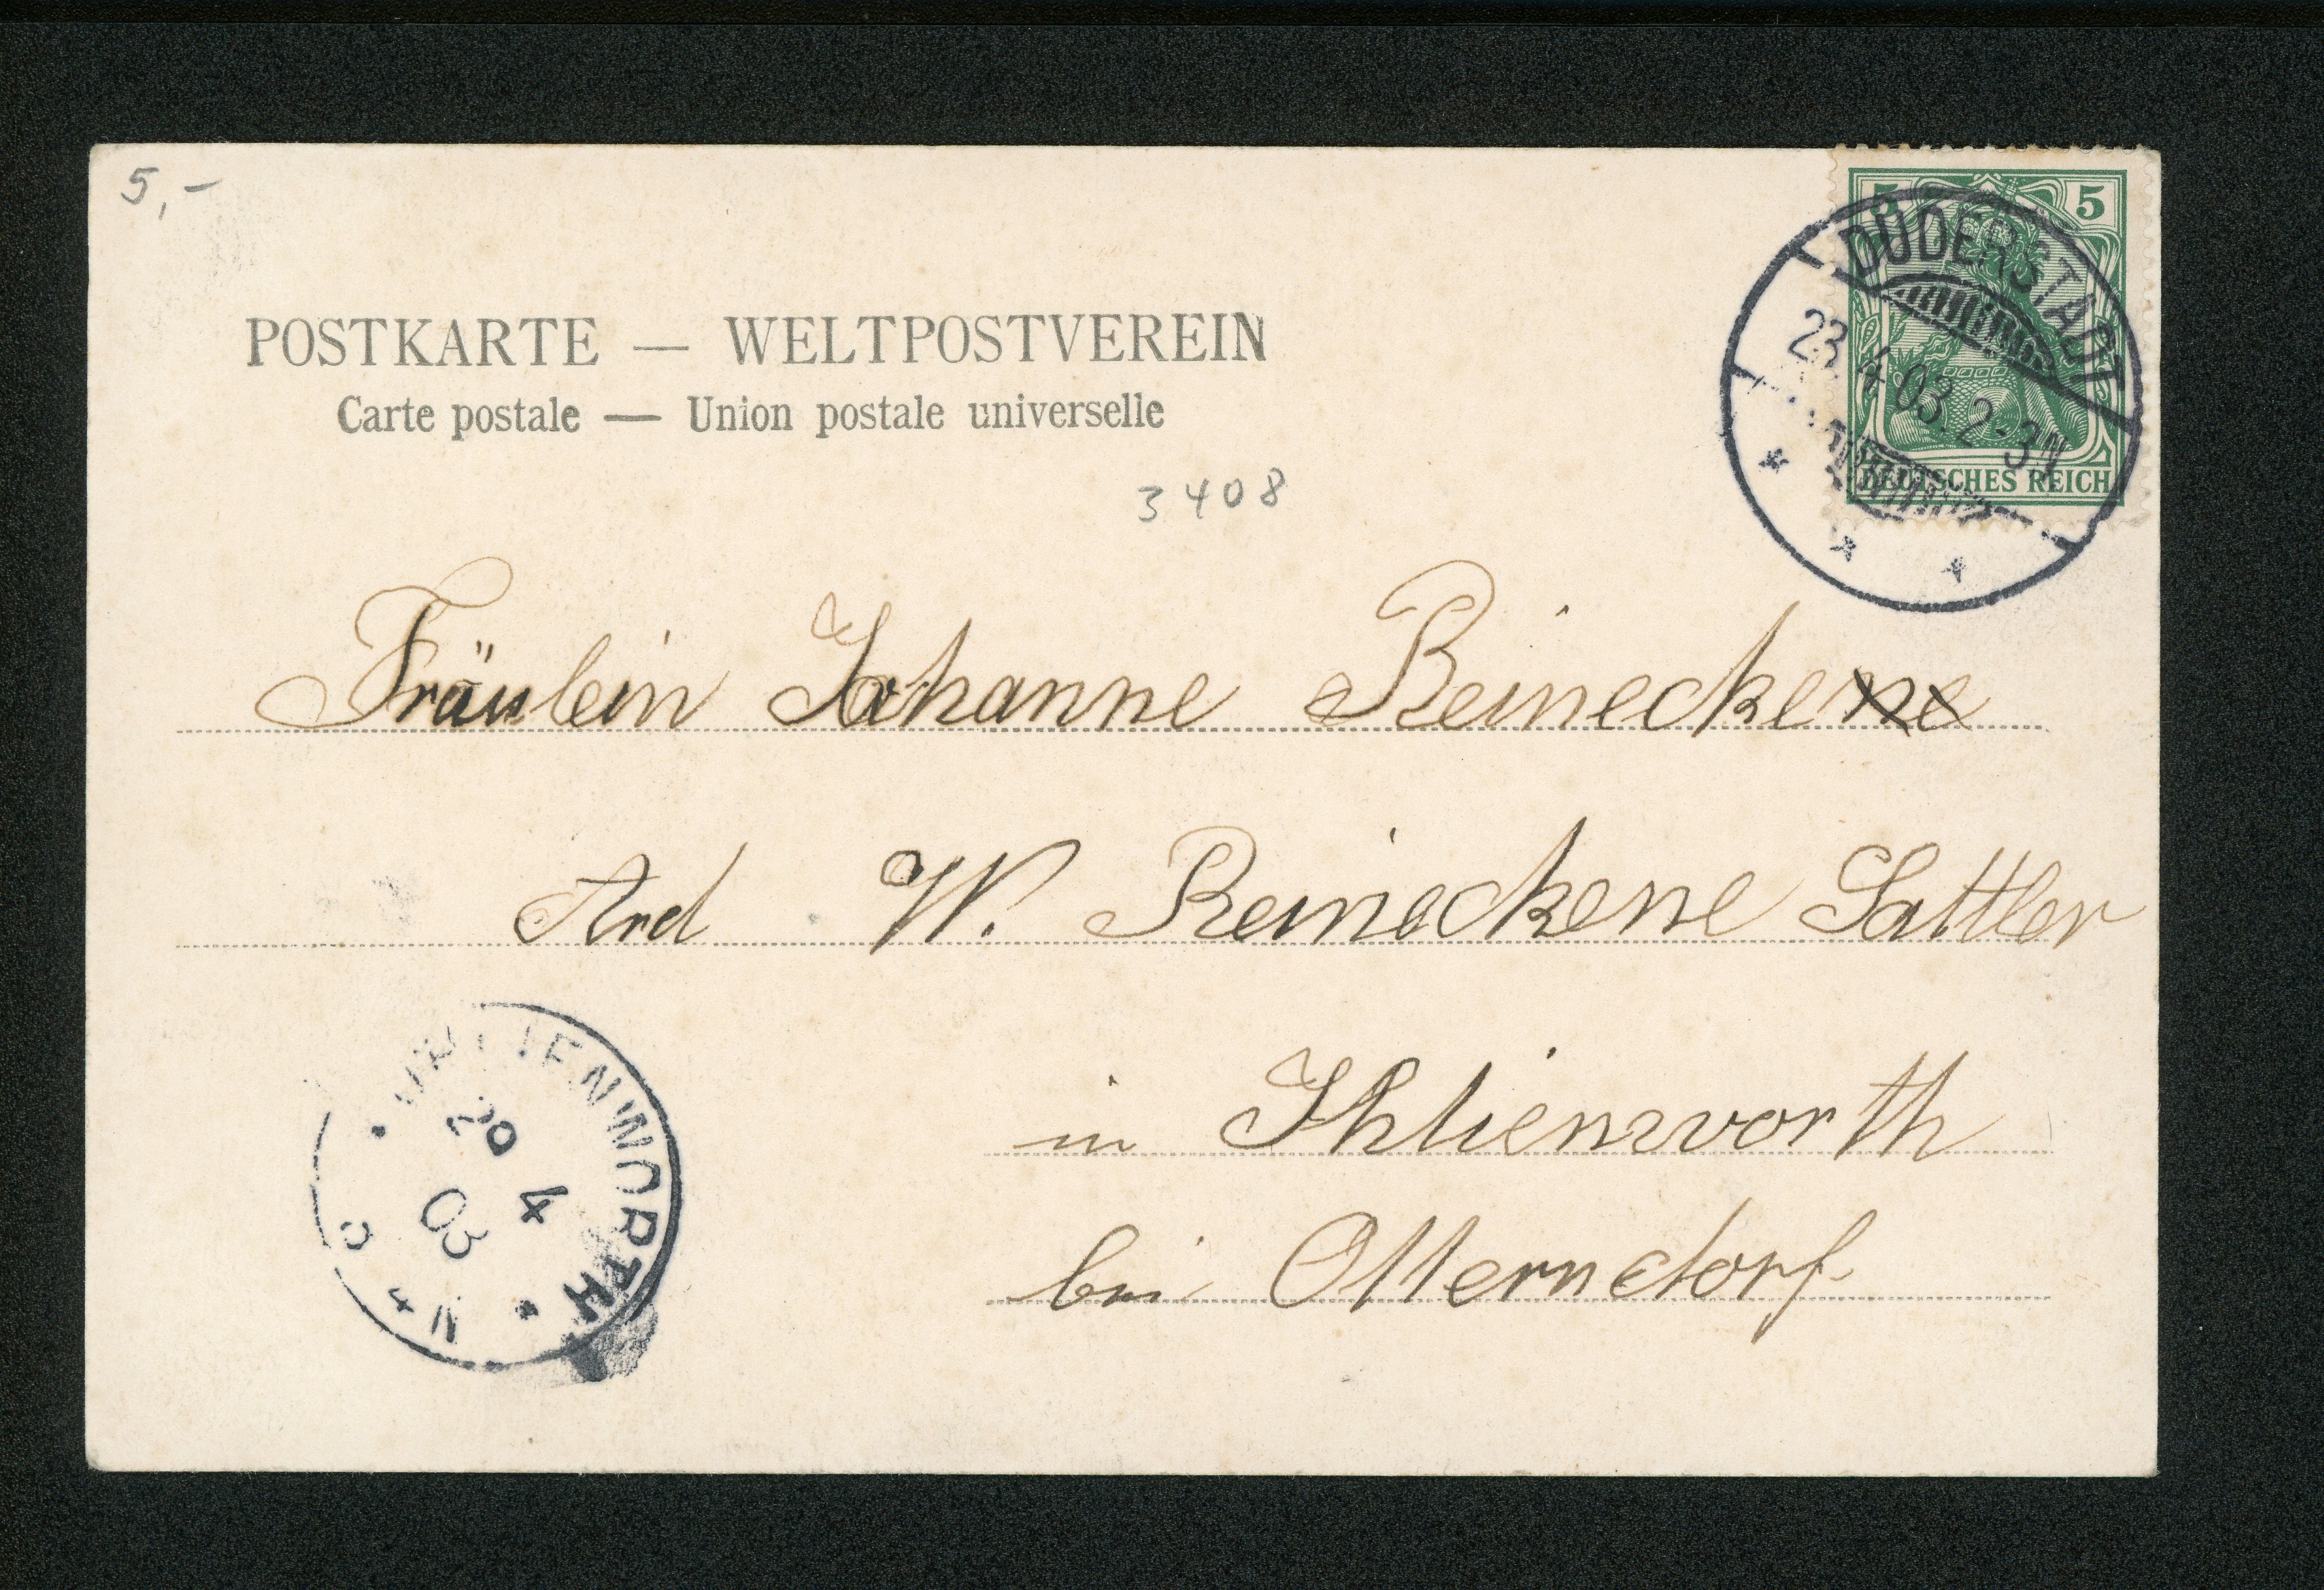 5,-
5 5
DUDERSTADT
23.4.03.2-3N
DEUTSCHES REICH
POSTKARTE — WELTPOSTVEREIN
Carte postale — Union postale universelle
3408
Fräulein Johanne Reinecke
Ard W. Reineckene Sattler
in Ihlienworth
bei Otterndorf
4
03